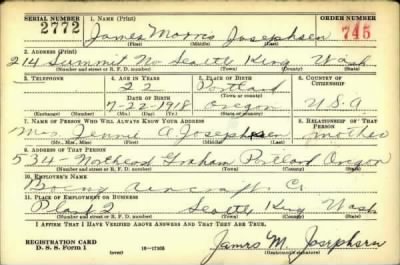 SERIAL NUMBER 1. NAME (Print) ORDER NUMBER
2772 James Morris Josephsen 745
(First) (Middle) (Last)
2. ADDRESS (Print)
214 Summit No Seattle King Wash
(Number and street or R. F. D. number) (Town) (County) (State)
3. TELEPHONE 4. AGE IN YEARS 5. PLACE OF BIRTH 6. COUNTRY OF CITIZENSHIP
22 Portland
(Town or county)
DATE OF BIRTH
7-22-1918 Oregon U.S.A
(Exchange) (Number) (Mo.) (Day) (Yr.) (State or country)
7. NAME OF PERSON WHO WILL ALWAYS KNOW YOUR ADDRESS 8. RELATIONSHIP OF THAT PERSON
Mrs Jennie A Josephsen mother
(Mr., Mrs., Miss) (First) (Middle) (Last)
9. ADDRESS OF THAT PERSON
534 - Northeast Graham Portland Oregon
(Number and street or R. F. D. number) (Town) (County) (State)
10. EMPLOYER'S NAME
Boeing Aircraft Co
11. PLACE OF EMPLOYMENT OR BUSINESS
Plant 2 Seattle King Wash
(Number and street or R. F. D. number) (Town) (County) (State)
I AFFIRM THAT I HAVE VERIFIED ABOVE ANSWERS AND THAT THEY ARE TRUE.
REGISTRATION CARD
D. S. S. Form 1 James M. Josephsen
(Registrant's signature)